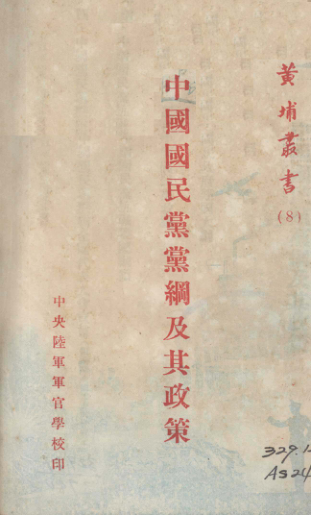 黃埔叢書
(8)
中國國民黨黨綱及其政策
中央陸軍軍官學校印
329.1
AS24